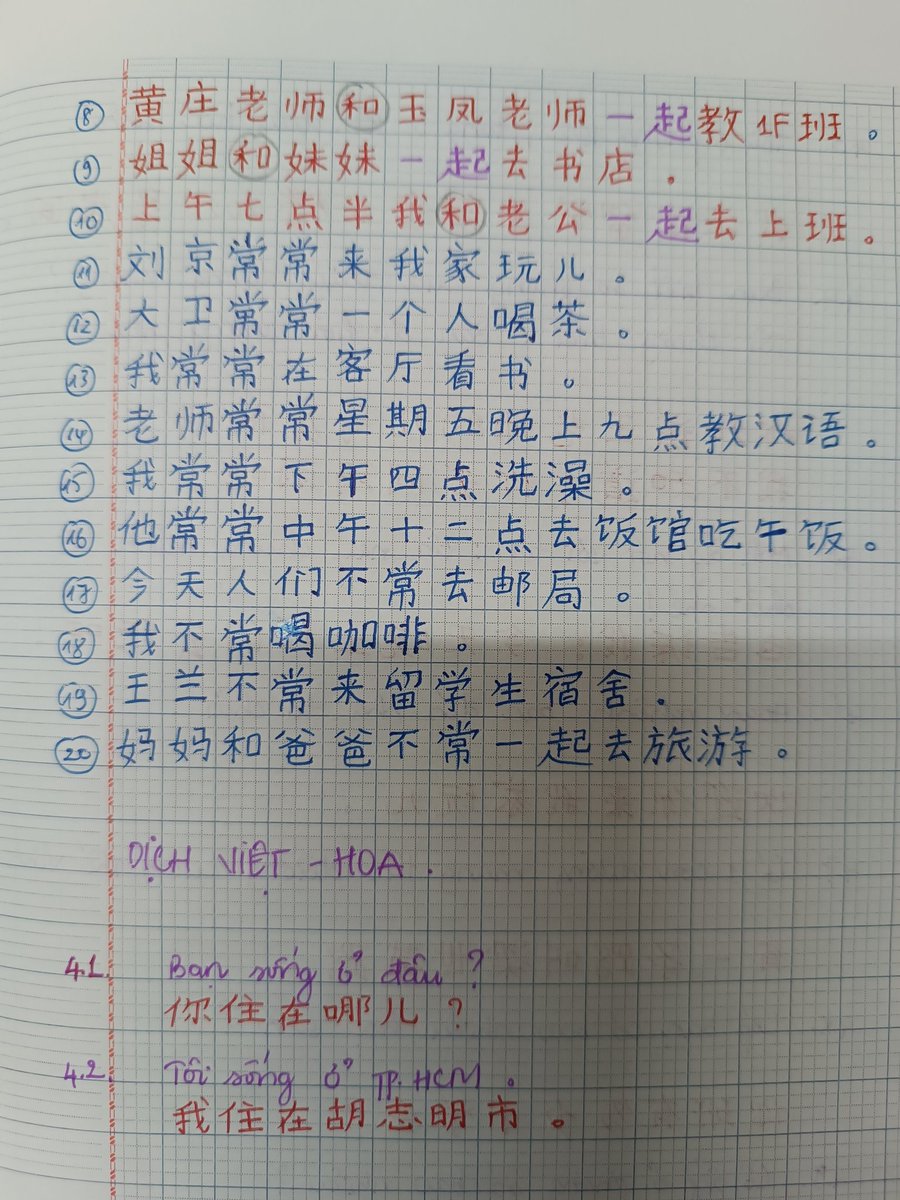 ⑧ 黄庄老师和玉凤老师一起教1F班。
⑨ 姐姐和妹妹一起去书店.
⑩ 上午七点半我和老公一起去上班。
⑪ 刘京常常来我家玩儿。
⑫ 大卫常常一个人喝茶。
⑬ 我常常在客厅看书。
⑭ 老师常常星期五晚上九点教汉语。
⑮ 我常常下午四点洗澡。
⑯ 他常常中午十二点去饭馆吃午饭。
⑰ 今天人们不常去邮局。
⑱ 我不常喝咖啡。
⑲ 王兰不常来留学生宿舍.
⑳ 妈妈和爸爸不常一起去旅游。
DỊCH VIỆT - HOA.
4.1. Bạn sống ở đâu?
你住在哪儿?
4.2. Tôi sống ở TP.HCM.
我住在胡志明市。